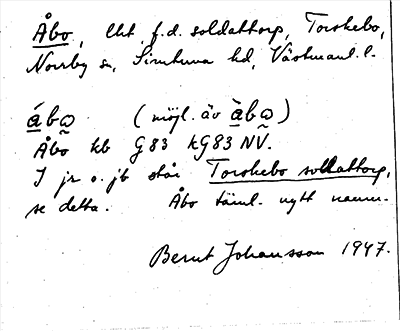 Åbo, lht f.d. soldattorp, Torskebo,
Norrby sn, Simtuna hd, Västmanl. l.
ábω̰ (möjl. äv àbω̰)
Åbo kb G83 kG83 NV.
I jr o. jb står Torskebo soldattorp,
se detta. Åbo täml. nytt namn.
Bernt Johansson 1947.